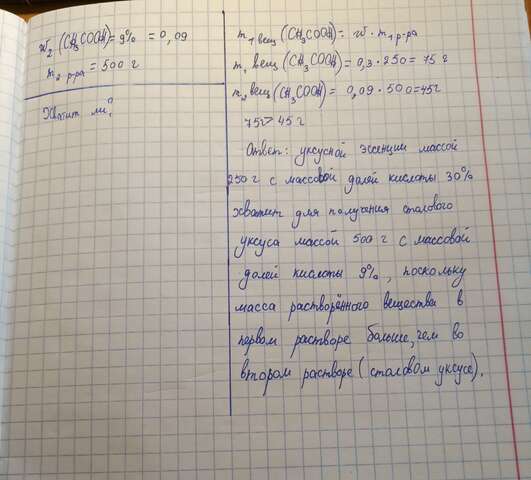 w₂ (CH₃COOH) = 9% = 0,09
m₂ р-ра = 500 г
Хватит ли?
m₁ вещ (CH₃COOH) = w · m₁ р-ра
m₁ вещ (CH₃COOH) = 0,3 · 250 = 75 г
m₂ вещ (CH₃COOH) = 0,09 · 500 = 45 г
75 г > 45 г
Ответ: уксусной эссенции массой
250 г с массовой долей кислоты 30%
хватит для получения столового
уксуса массой 500 г с массовой
долей кислоты 9%, поскольку
масса растворённого вещества в
первом растворе больше, чем во
втором растворе (столовом уксусе).